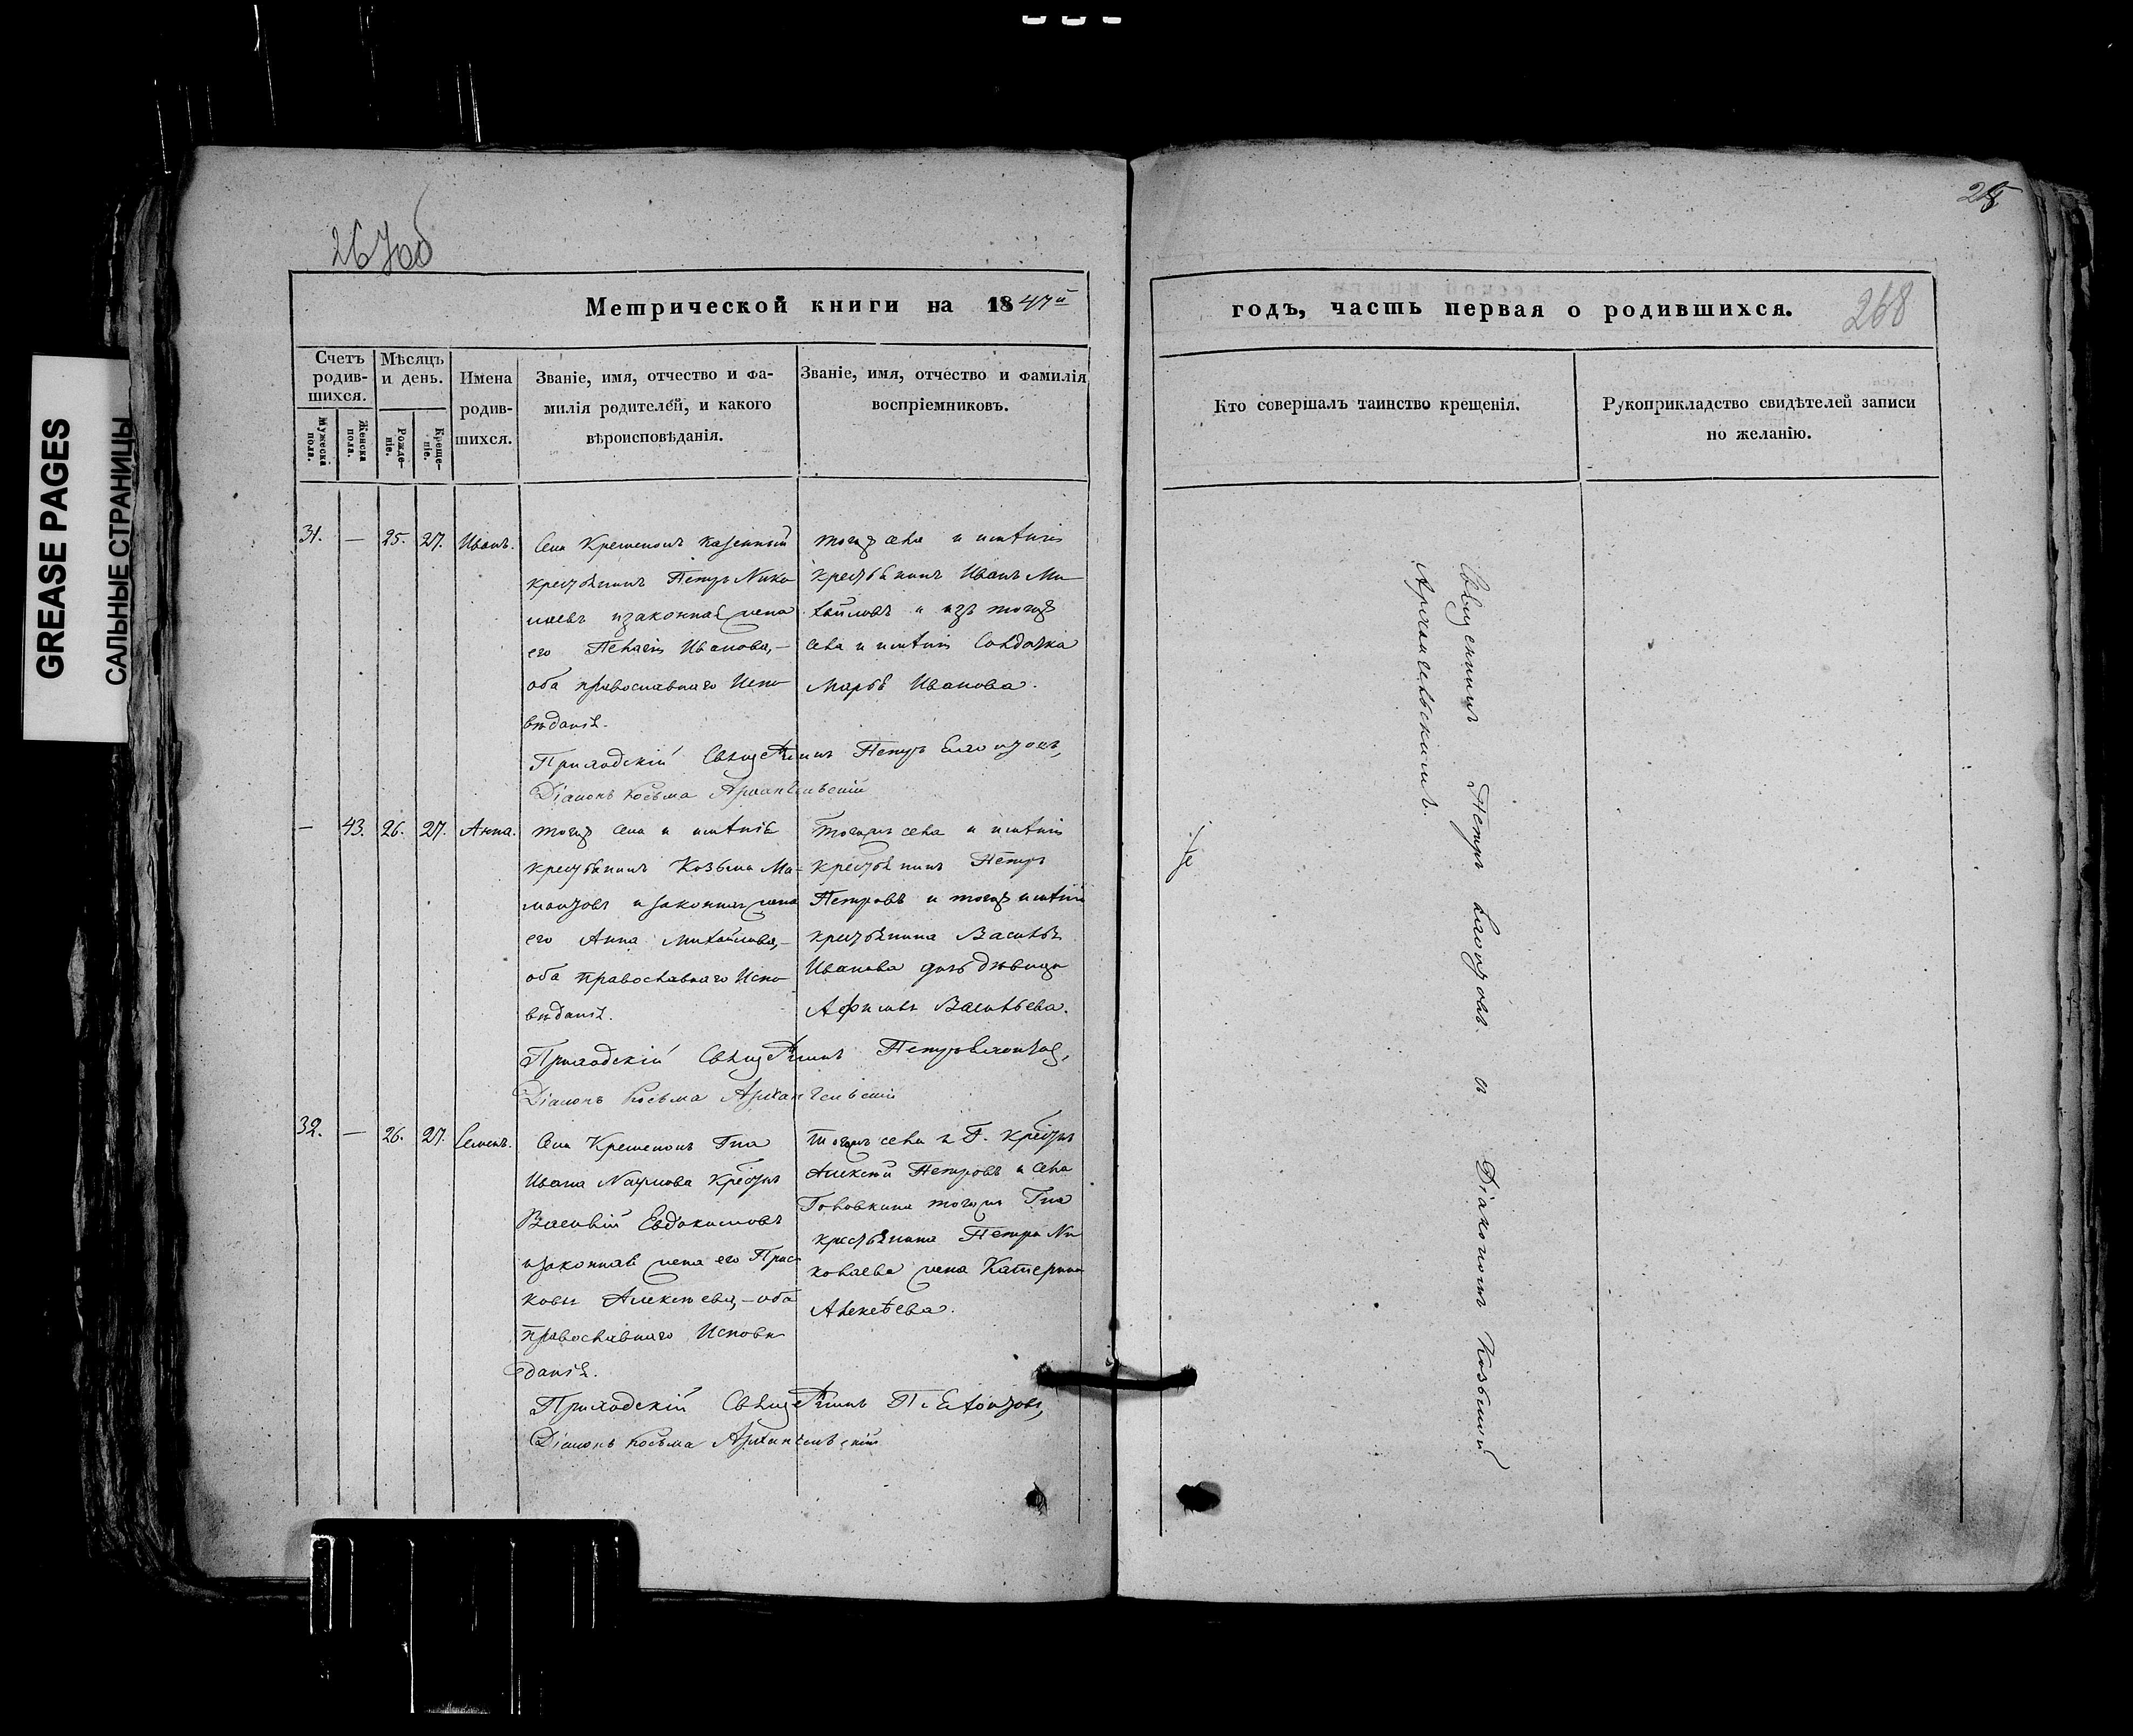 GREASE PAGES
САЛЬНЫЕ СТРАНИЦЫ
267об
Метрической книги на 1847й
Счетъ родив-шихся.
Мужеска пола.
Женска пола.
Мѣсяцъ и день.
Рожде-ніе.
Креще-ніе.
Имена родив-шихся.
Званіе, имя, отчество и фа-
милія родителей, и какого
вѣроисповѣданія.
Званіе, имя, отчество и фамилія
воспріемниковъ.
31. — 25. 27. Иванъ.
Села казенный
крестьянинъ Петръ Нико
лаевъ и законная жена
его Иванова,—
оба православнаго Испо
вѣданія.
тогожъ села и имѣнія
крестьянинъ Иванъ Ми
хайловъ и изъ тогожъ
села и имѣнія Солдатка
Марѳа Иванова.
Приходскій Священникъ Петръ
Діаконъ Косьма Архангельскій
— 43. 26. 27. Анна.
тогожъ села и имѣнія
крестьянинъ Козьма
и законная жена
его Анна Михайлова,—
оба православнаго Испо
вѣданія.
Тогожъ села и имѣнія
крестьянинъ Петръ
Петровъ и тогожъ имѣнія
крестьянина Василья
Иванова дочь дѣвица
Васильева.
Приходскій Священникъ Петръ
Діаконъ Косьма Архангельскій
32. — 26. 27. Семенъ.
Села Гна
Ивана Наумова
Василій Евдокимовъ
и законная жена его Прас
ковья Алексѣева,—оба
православнаго Исповѣ
данія.
тогожъ села и Г.
Алексѣй Петровъ и села
Головкина тогожъ Гна
крестьянина Петра Ни
колаева жена Катерина
Алексѣева.
Приходскій Священникъ П.
Діаконъ Косьма Архангельскій
268
годъ, часть первая о родившихся.
268
Кто совершалъ таинство крещенія.
Рукоприкладство свидѣтелей записи
по желанію.
Священникъ Петръ съ Діакономъ Козьмой
Архангельскимъ.